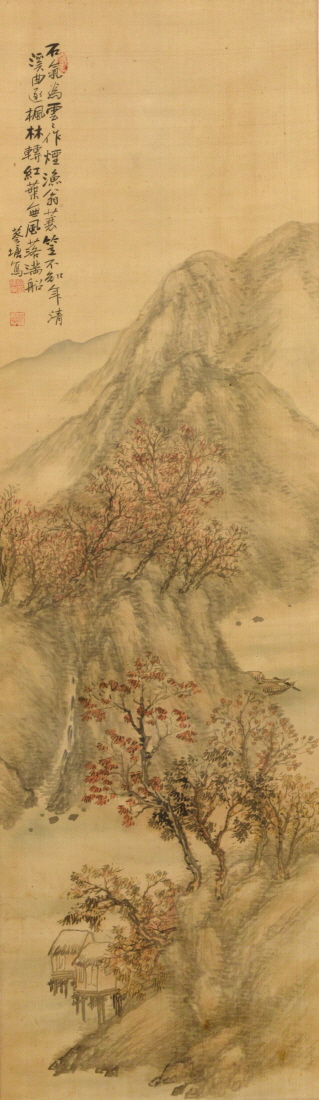 石氣為雲々作煙漁翁蓑笠不知年清
溪曲逐楓林轉紅葉無風落滿船
琴塘寫